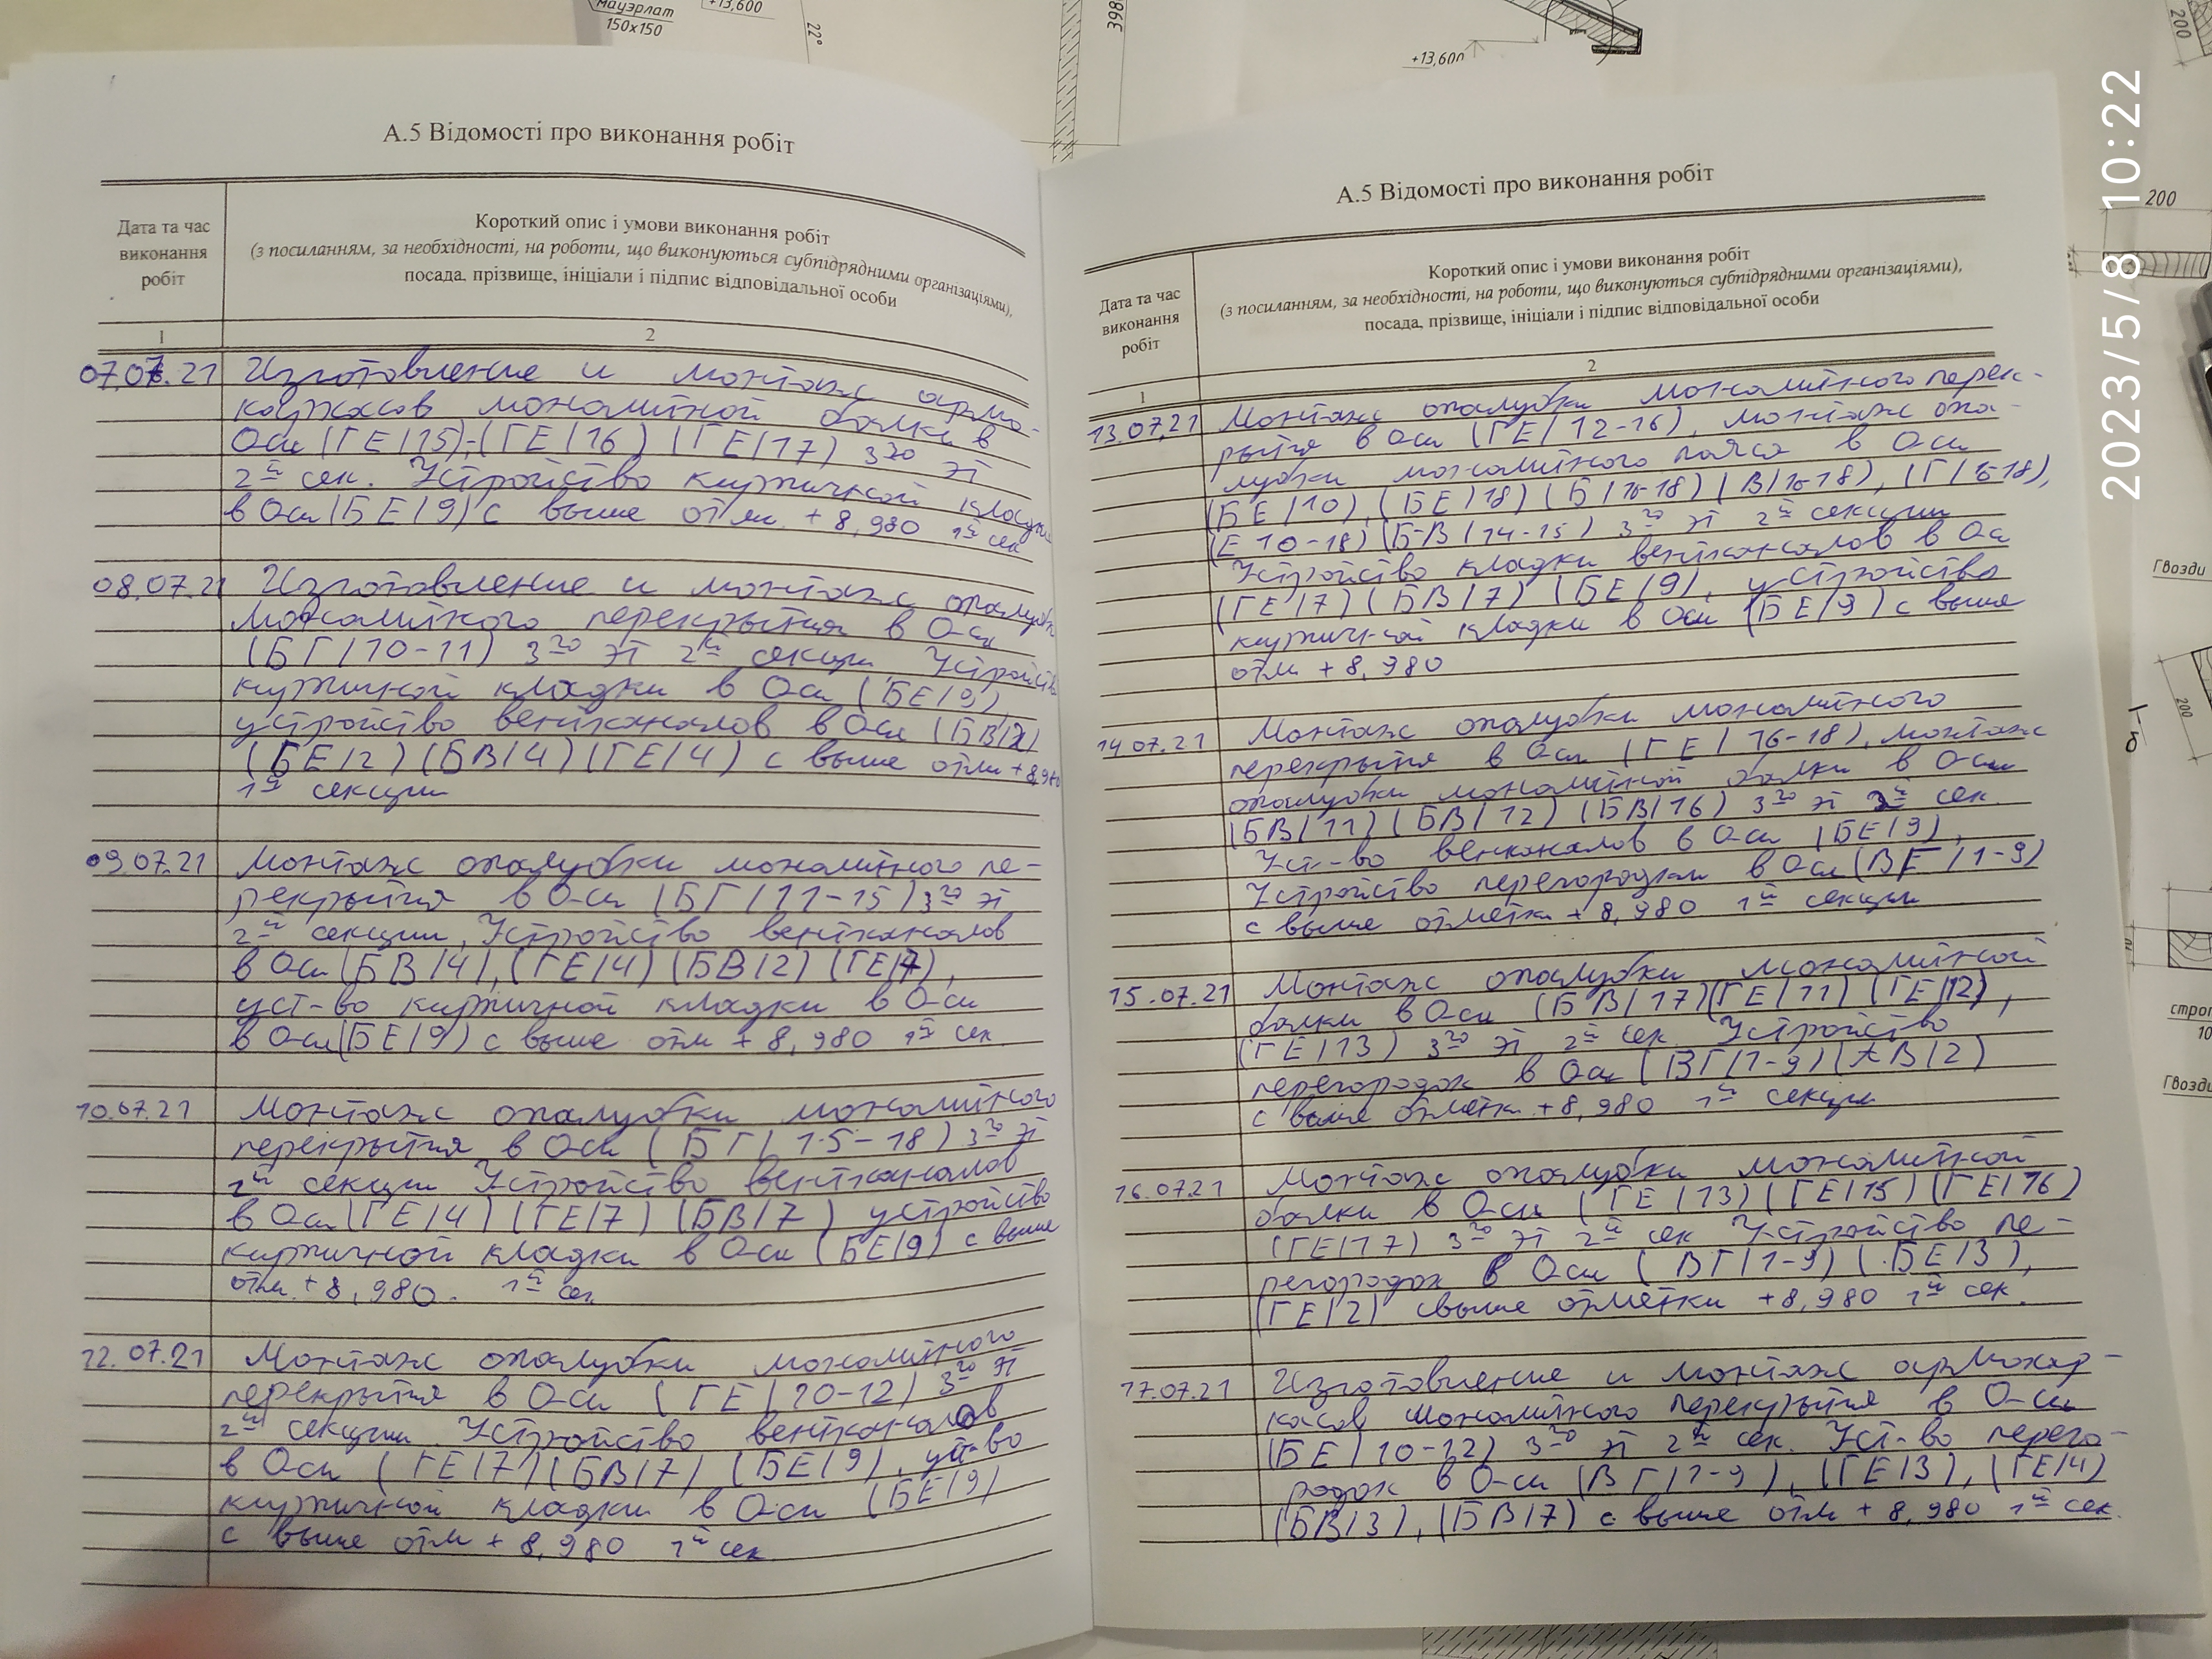 мауэрлат
150х150
+13,600
22°
398
+13,600
200
2023/5/8 10:22
200
Гвозди
200
Гвозди
А.5 Відомості про виконання робіт
Дата та час
виконання
робіт
Короткий опис і умови виконання робіт
(з посиланням, за необхідності, на роботи, що виконуються субпідрядними організаціями),
посада, прізвище, ініціали і підпис відповідальної особи
1
2
07.07.21 Изготовление и монтаж армо-
каркасов монолитной балки в
Оси (ГЕ/15); (ГЕ/16) (ГЕ/17) 3го эт
2й сек. Устройство кирпичной кладки
в Оси (БЕ/9) с выше отм. +8,980 1й сек
08.07.21 Изготовление и монтаж опалубки
монолитного перекрытия в Оси
(БГ/10-11) 3го эт 2й секции Устройство
кирпичной кладки в Оси (БЕ/9),
устройство вентканалов в Оси (БВ/2)
(БЕ/2) (БВ/4) (ГЕ/4) с выше отм +8,980
1й секции
09.07.21 Монтаж опалубки монолитного пе-
рекрытия в Оси (БГ/11-15) 3го эт
2й секции, Устройство вентканалов
в Оси (БВ/4), (ГЕ/4) (БВ/2) (ГЕ/7),
уст-во кирпичной кладки в Оси
в Оси (БЕ/9) с выше отм + 8,980 1й сек
10.07.21 Монтаж опалубки монолитного
перекрытия в Оси (БГ/15-18) 3го эт
2й секции Устройство вентканалов
в Оси (ГЕ/4) (ГЕ/7) (БВ/7) устройство
кирпичной кладки в Оси (БЕ/9) с выше
отм. +8,980. 1й сек
12.07.21 Монтаж опалубки монолитного
перекрытия в Оси (ГЕ/10-12) 3го эт
2й секции Устройство вентканалов
в Оси (ГЕ/7) (БВ/7) (БЕ/9), уст-во
кирпичной кладки в Оси (БЕ/9)
с выше отм + 8,980 1й сек
А.5 Відомості про виконання робіт
Дата та час
виконання
робіт
Короткий опис і умови виконання робіт
(з посиланням, за необхідності, на роботи, що виконуються субпідрядними організаціями),
посада, прізвище, ініціали і підпис відповідальної особи
1
2
13.07.21 Монтаж опалубки монолитного перек-
рытия в Оси (ГЕ/12-16), монтаж опа-
лубки монолитного пояса в Оси
(БЕ/10), (БЕ/18) (Б/16-18) (В/16-18), (Г/16-18),
(Е 10-18) (Б-В/14-15) 3го эт 2й секции
Устройство кладки вентканалов в Оси
(ГЕ/7) (БВ/7) (БЕ/9), устройство
кирпичной кладки в Оси (БЕ/9) с выше
отм + 8,980
14.07.21 Монтаж опалубки монолитного
перекрытия в Оси (ГЕ/16-18), монтаж
опалубки монолитной балки в Оси
(БВ/11) (БВ/12) (БВ/16) 3го эт 2й сек.
Уст-во венканалов в Оси (БЕ/9),
Устройство перегородки в Оси (ВГ/1-9)
с выше отметки + 8,980 1й секции
15.07.21 Монтаж опалубки монолитной
балки в Оси (БВ/17) (ГЕ/11) (ГЕ/12),
(ГЕ/13) 3го эт 2й сек. Устройство
перегородок в Оси (ВГ/1-9) (АВ/2)
с выше отметки +8,980 1й секции
16.07.21 Монтаж опалубки монолитной
балки в Оси (ГЕ/13) (ГЕ/15) (ГЕ/16)
(ГЕ/17) 3го эт 2й сек Устройство пе-
регородок в Оси (ВГ/1-9) (БЕ/3),
(ГЕ/2) свыше отметки +8,980 1й сек.
17.07.21 Изготовление и монтаж армокар-
касов монолитного перекрытия в Оси
(БЕ/10-12) 3го эт 2й сек. Уст-во перего-
родок в Оси (ВГ/1-9), (ГЕ/3), (ГЕ/4)
(БВ/3), (БВ/7) с выше отм + 8,980 1й сек.